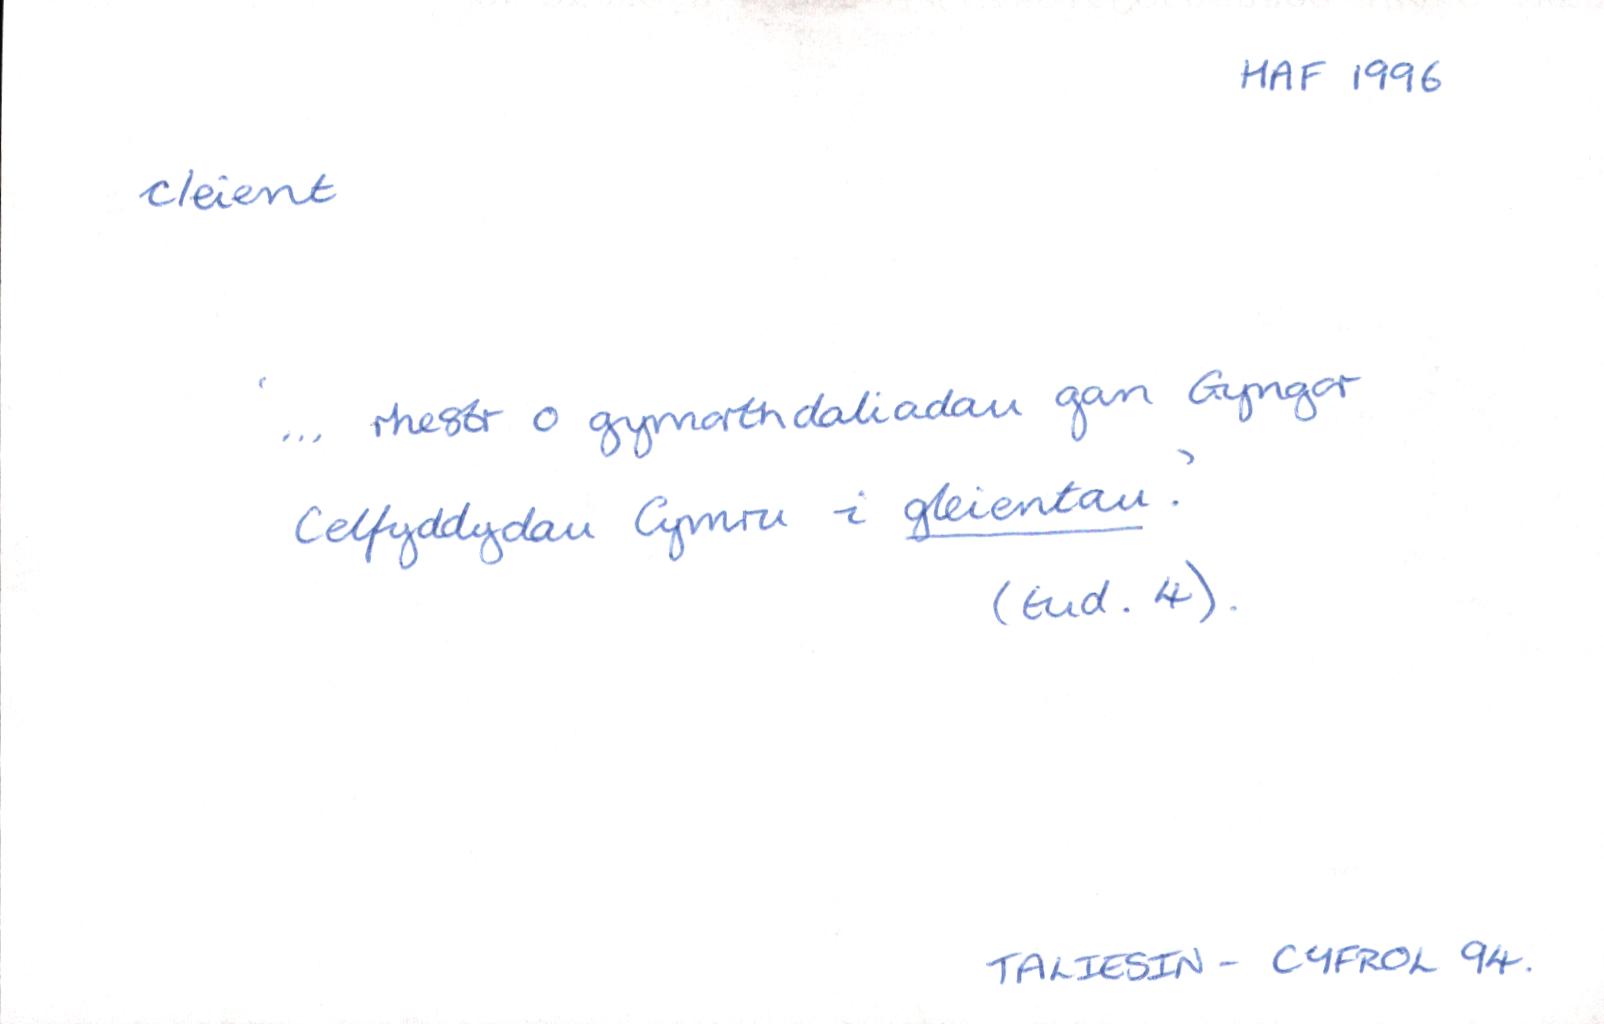 HAF 1996
cleient
'... rhestr o gymorthdaliadau gan Gyngor
Celfyddydau Cymru i gleientau.'
(tud. 4).
TALIESIN - CYFROL 94.